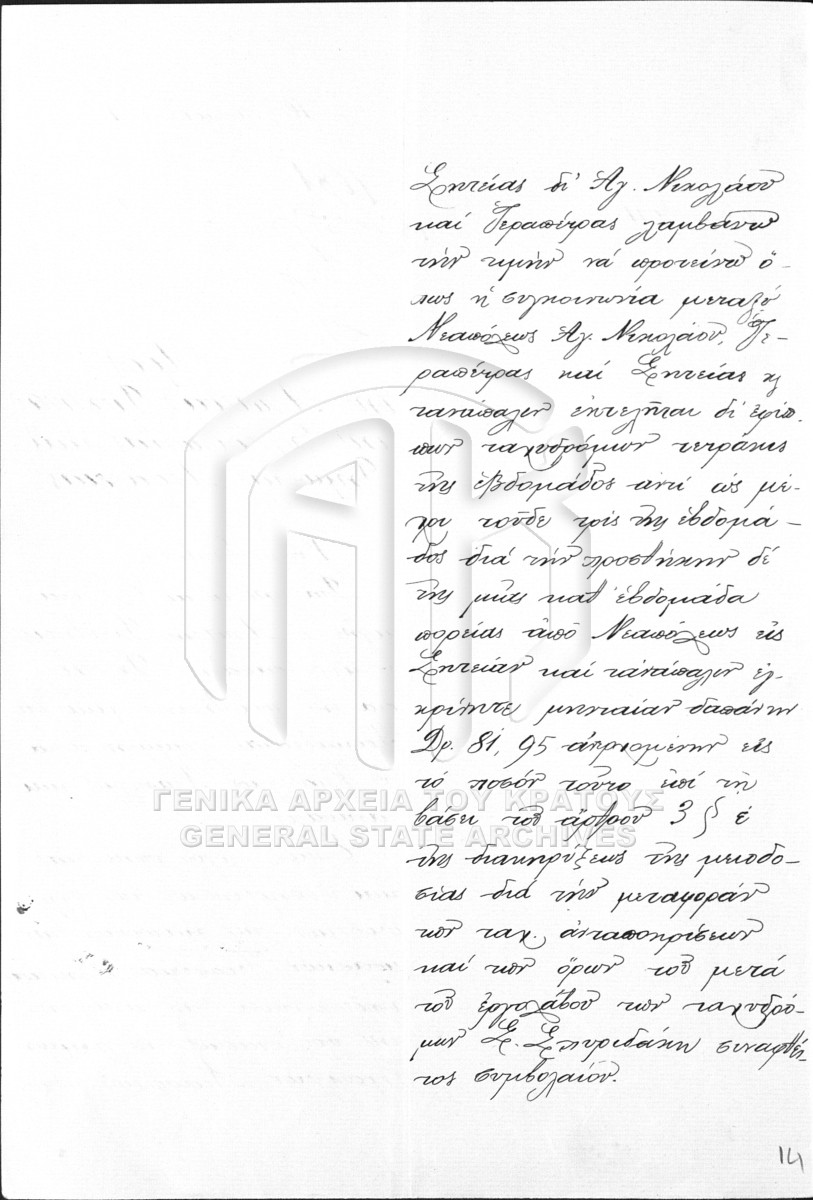 Σητείας δι' Αγ. Νικολάου
καί Ιεραπέτρας λαμβάνω
τήν τιμήν νά προτείνω ὅ-
πως ἡ συγκοινωνία μεταξύ
Νεαπόλεως Αγ. Νικολάου, Ἱε-
ραπέτρας καί Σητείας κ
τανάπαλιν ἐκτελῆται δι' ἐφίπ-
πων ταχυδρόμων τετράκις
τῆς ἑβδομάδος αντί ὡς μέ-
χρι τοῦδε τρίς τῆς ἑβδομά-
δος διά τήν προσθήκην δέ
τῆς μιᾶς καθ' ἑβδομάδα
πορείας ἀπό Νεαπόλεως εἰς
Σητείαν καί τἀνάπαλιν ἐγ-
κρίνητε μηνιαίαν δαπάνην
Δρ. 81,95 ἀνερχομένην εἰς
τό ποσόν τοῦτο ἐπί τῇ
βάσει τοῦ ἄρθρου 3 § ε
τῆς διακηρύξεως τῆς μειοδο-
σίας διά τήν μεταφοράν
τῶν ταχ. ἀνταποκρίσεων
καί τῶν ὅρων τοῦ μετά
τοῦ ἐργολάβου τῶν ταχυδρό-
μων Σ. Σπυριδάκη συναφθέν-
τος συμβολαίου.
ΓΕΝΙΚΑ ΑΡΧΕΙΑ ΤΟΥ ΚΡΑΤΟΥΣ
GENERAL STATE ARCHIVES
14